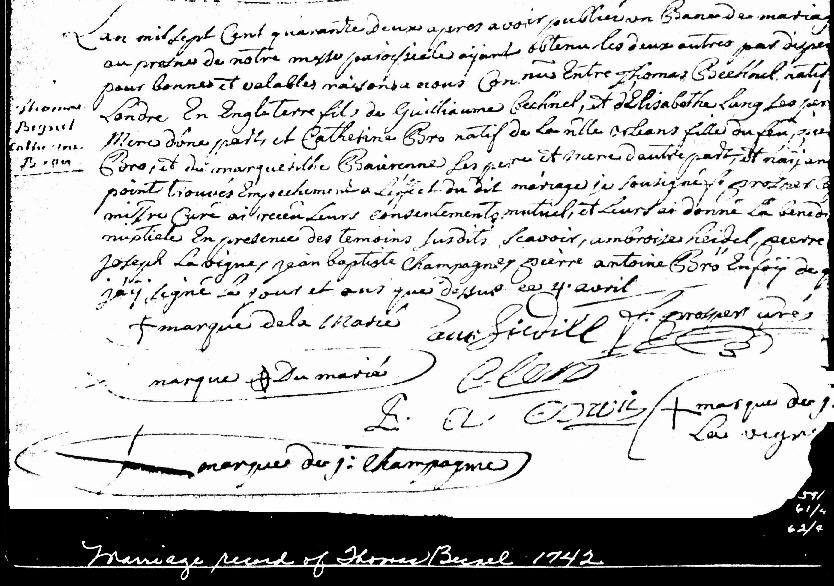 L'an mil sept Cent quarante deux apres avoir publié un Banc de mariag
au prosne de notre messe paroissiale ayant obtenu les deux autres par dispen
pour bonnes et valables raisons a nous Connues Entre Thomas natif
Londre En Engleterre fils de Guilliaume Bechnel, et d'Elisabethe Lang ses per
Mere d'une part, et Catherine Bro natif de La nlle orleans fille du feu
Bro, et de marguerilhe ses pere et mere d'autre part, et n'aÿan
point trouvés Empechement a L'effect du dit mariage je sousigné fr. prosper
misre Curé ai receu Leurs consentements mutuel, et Leurs ai donné La bened
nuptiale En presence des temoins susdits scavoir, ambroise heidel, pierre
joseph La vigne, jean baptiste Champagne, pierre antoine Bro En foÿ de q
j'aÿ signé Le jour et ans que dessus ce 4 avril
Thomas
Catherine
+ marque de la Marié
fr. prosper curé
marque Du marié
+ marque de j.
La vigne
marque de j: Champagne
591
61/4
62/2
Marriage record of Thomas 1742